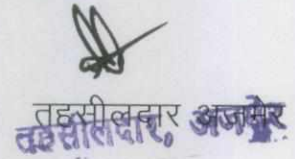 तहसीलदार अजमेर
तहसीलदार, अजमेर